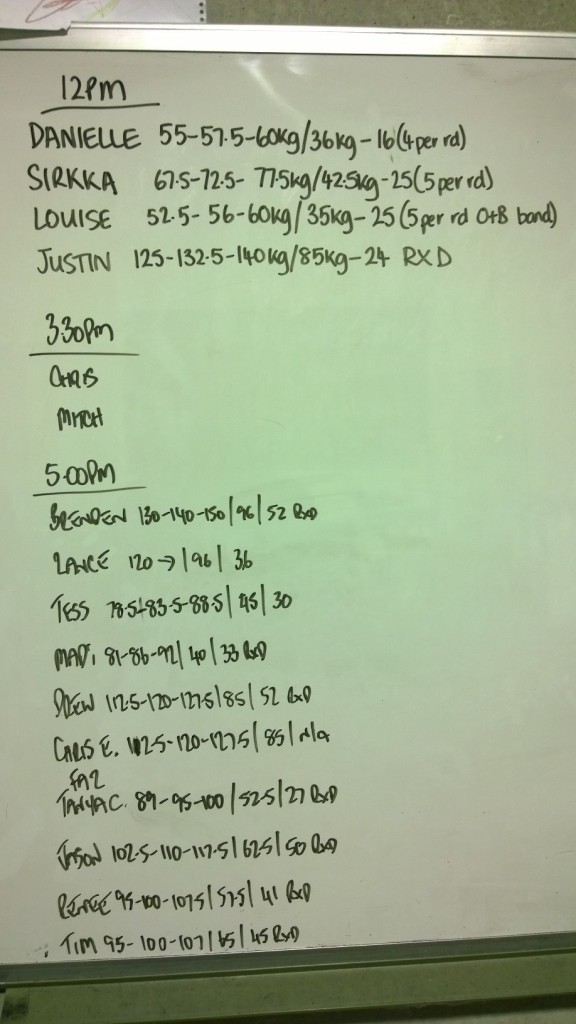 12pm
DANIELLE 55-57.5-60kg/36kg-16(4per rd)
SIRKKA 67.5-72.5-77.5kg/42.5kg-25(5per rd)
LOUISE 52.5-56-60kg/35kg-25(5per rd O+B band)
JUSTIN 125-132.5-140kg/85kg-24 RXD
3.30pm
CHRIS
MITCH
5.00pm
BRENDEN 130-140-150/96/52 RxD
LANCE 120→/96/36
TESS 78.5-83.5-88.5/45/30
MADi 81-86-92/40/33 RxD
DREW 112.5-120-127.5/85/52 RxD
CHRIS E. 112.5-120-127.5/85/n/a
TANYA C. 89-95-100/52.5/27 RxD
JASON 102.5-110-117.5/62.5/50 RxD
RENEE 95-100-107.5/57.5/41 RxD
TIM 95-100-107/65/45 RxD